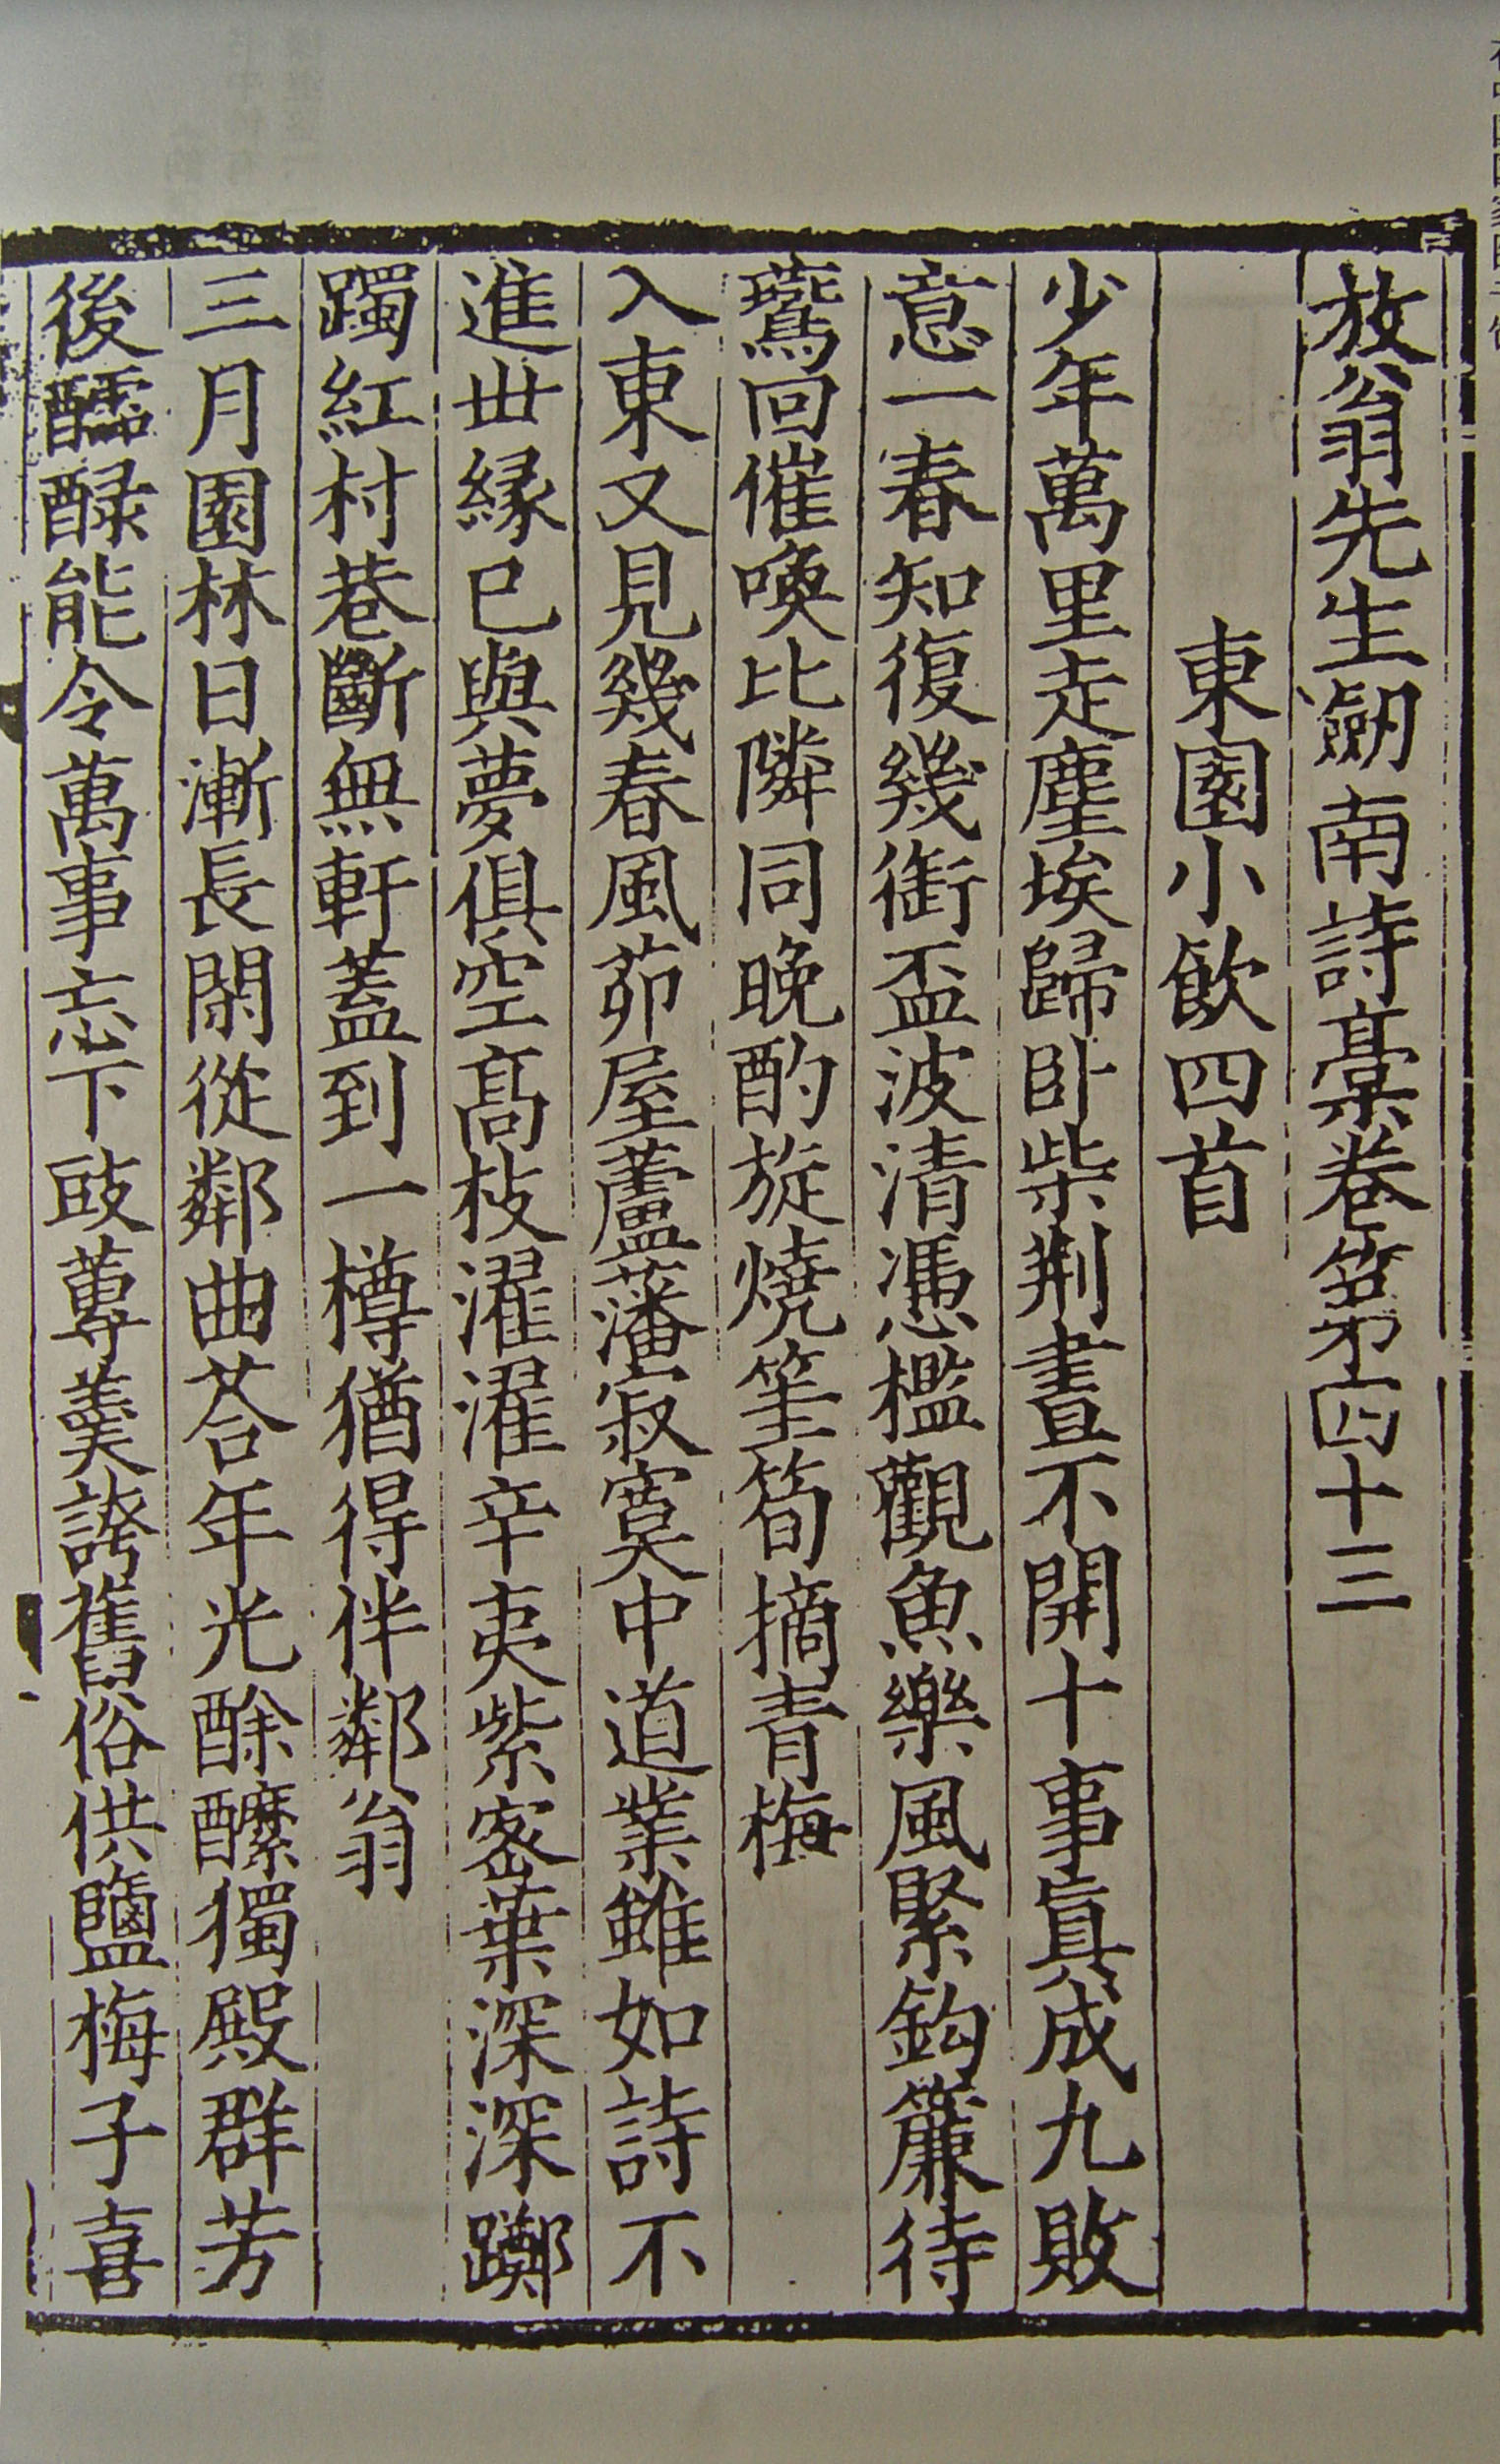 放翁先生劒南詩藁卷第四十三
東園小飲四首
少年萬里走塵埃歸卧柴荆晝不開十事真成九敗
意一春知復幾銜盃波清憑檻觀魚樂風緊鈎簾待
鷰回催喚比隣同晚酌旋燒筀筍摘青梅
入東又見幾春風茆屋蘆藩寂寞中道業雖如詩不
進丗緣已與夢俱空高枝濯濯辛夷紫密葉深深躑
躅紅村巷斷無軒蓋到一樽猶得伴鄰翁
三月園林日漸長閑從鄰曲荅年光酴醾獨殿群芳
後醽醁能令萬事忘下豉蓴羹誇舊俗供鹽梅子喜